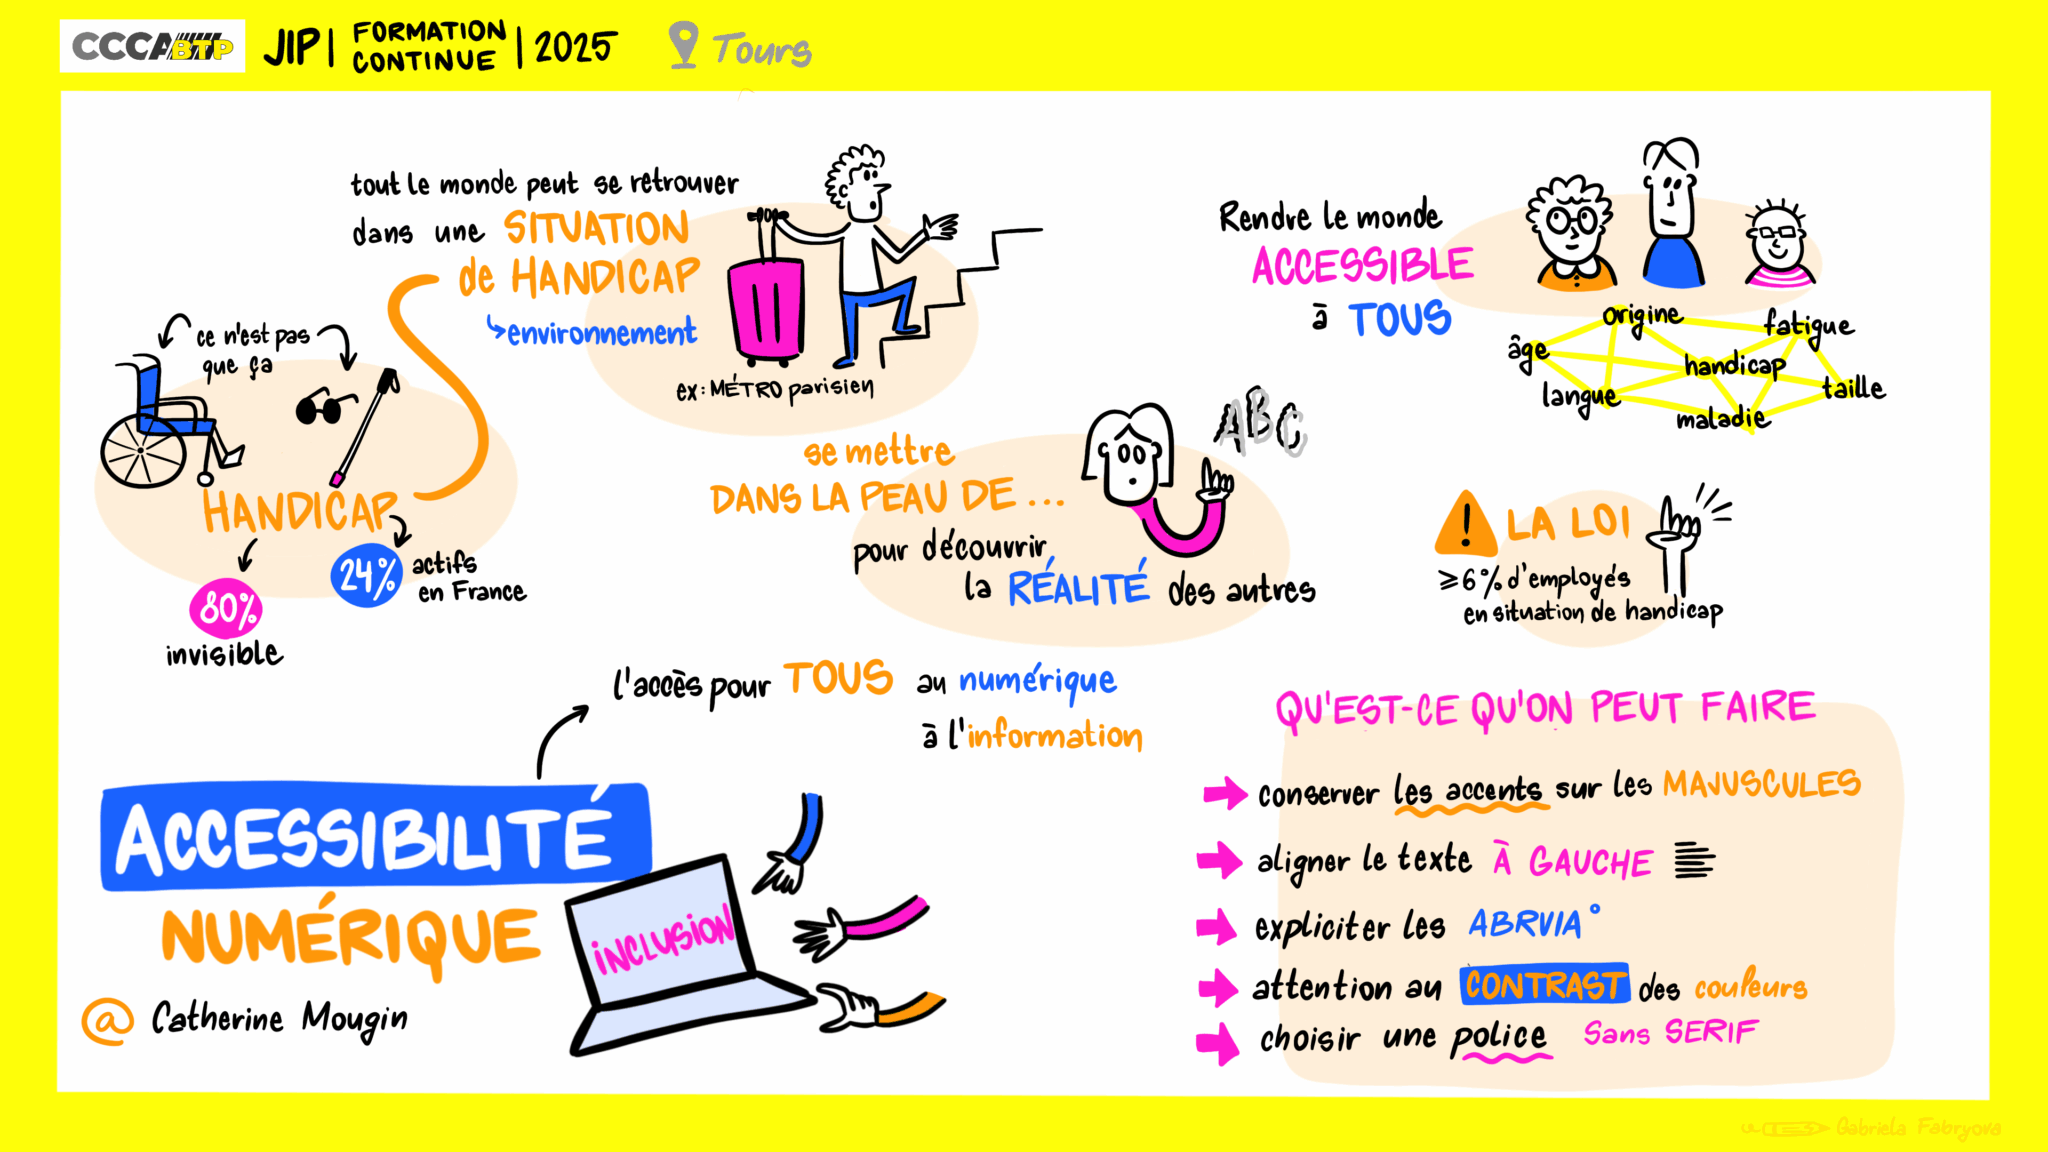 CCCA BTP
JIP | FORMATION CONTINUE | 2025
Tours
tout le monde peut se retrouver
dans une SITUATION
de HANDICAP
environnement
ex: MÉTRO parisien
ce n'est pas
que ça
HANDICAP
80%
invisible
24%
actifs
en France
se mettre
DANS LA PEAU DE ...
pour découvrir
la RÉALITÉ des autres
ABC
Rendre le monde
ACCESSIBLE
à TOUS
origine
fatigue
âge
handicap
langue
taille
maladie
! LA LOI
⩾6% d'employés
en situation de handicap
l'accès pour TOUS au numérique
à l'information
ACCESSIBILITÉ
NUMÉRIQUE
@ Catherine Mougin
iNCLUSiON
QU'EST-CE QU'ON PEUT FAIRE
conserver les accents sur les MAJUSCULES
aligner le texte À GAUCHE
expliciter les ABRVIA°
attention au CONTRAST des couleurs
choisir une police Sans SERIF
Gabriela Fabryova